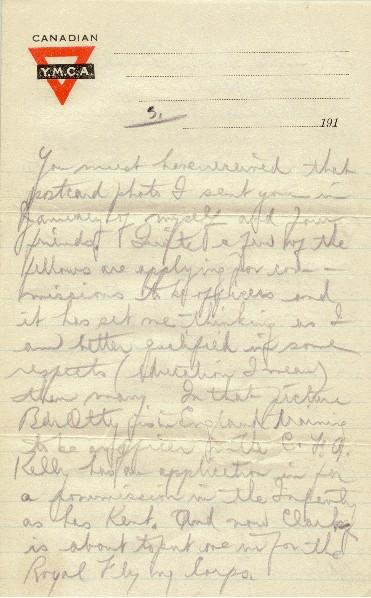 CANADIAN
Y.M.C.A.
5.
191
You must have received that
postcard photo I sent you in
January of myself and four
friends. Quite a few of the
fellows are applying for com-
missions to be officers and
it has set me thinking as I
am better qualified in some
respects (Education I mean)
than many. In that picture
Bdr Otty is in England training
to be an officer in the C. F. A.
Kelly has an application in for
a commission in the Infantry
as has Kent. And now Clark
is about to put one in for the
Royal Flying Corps.